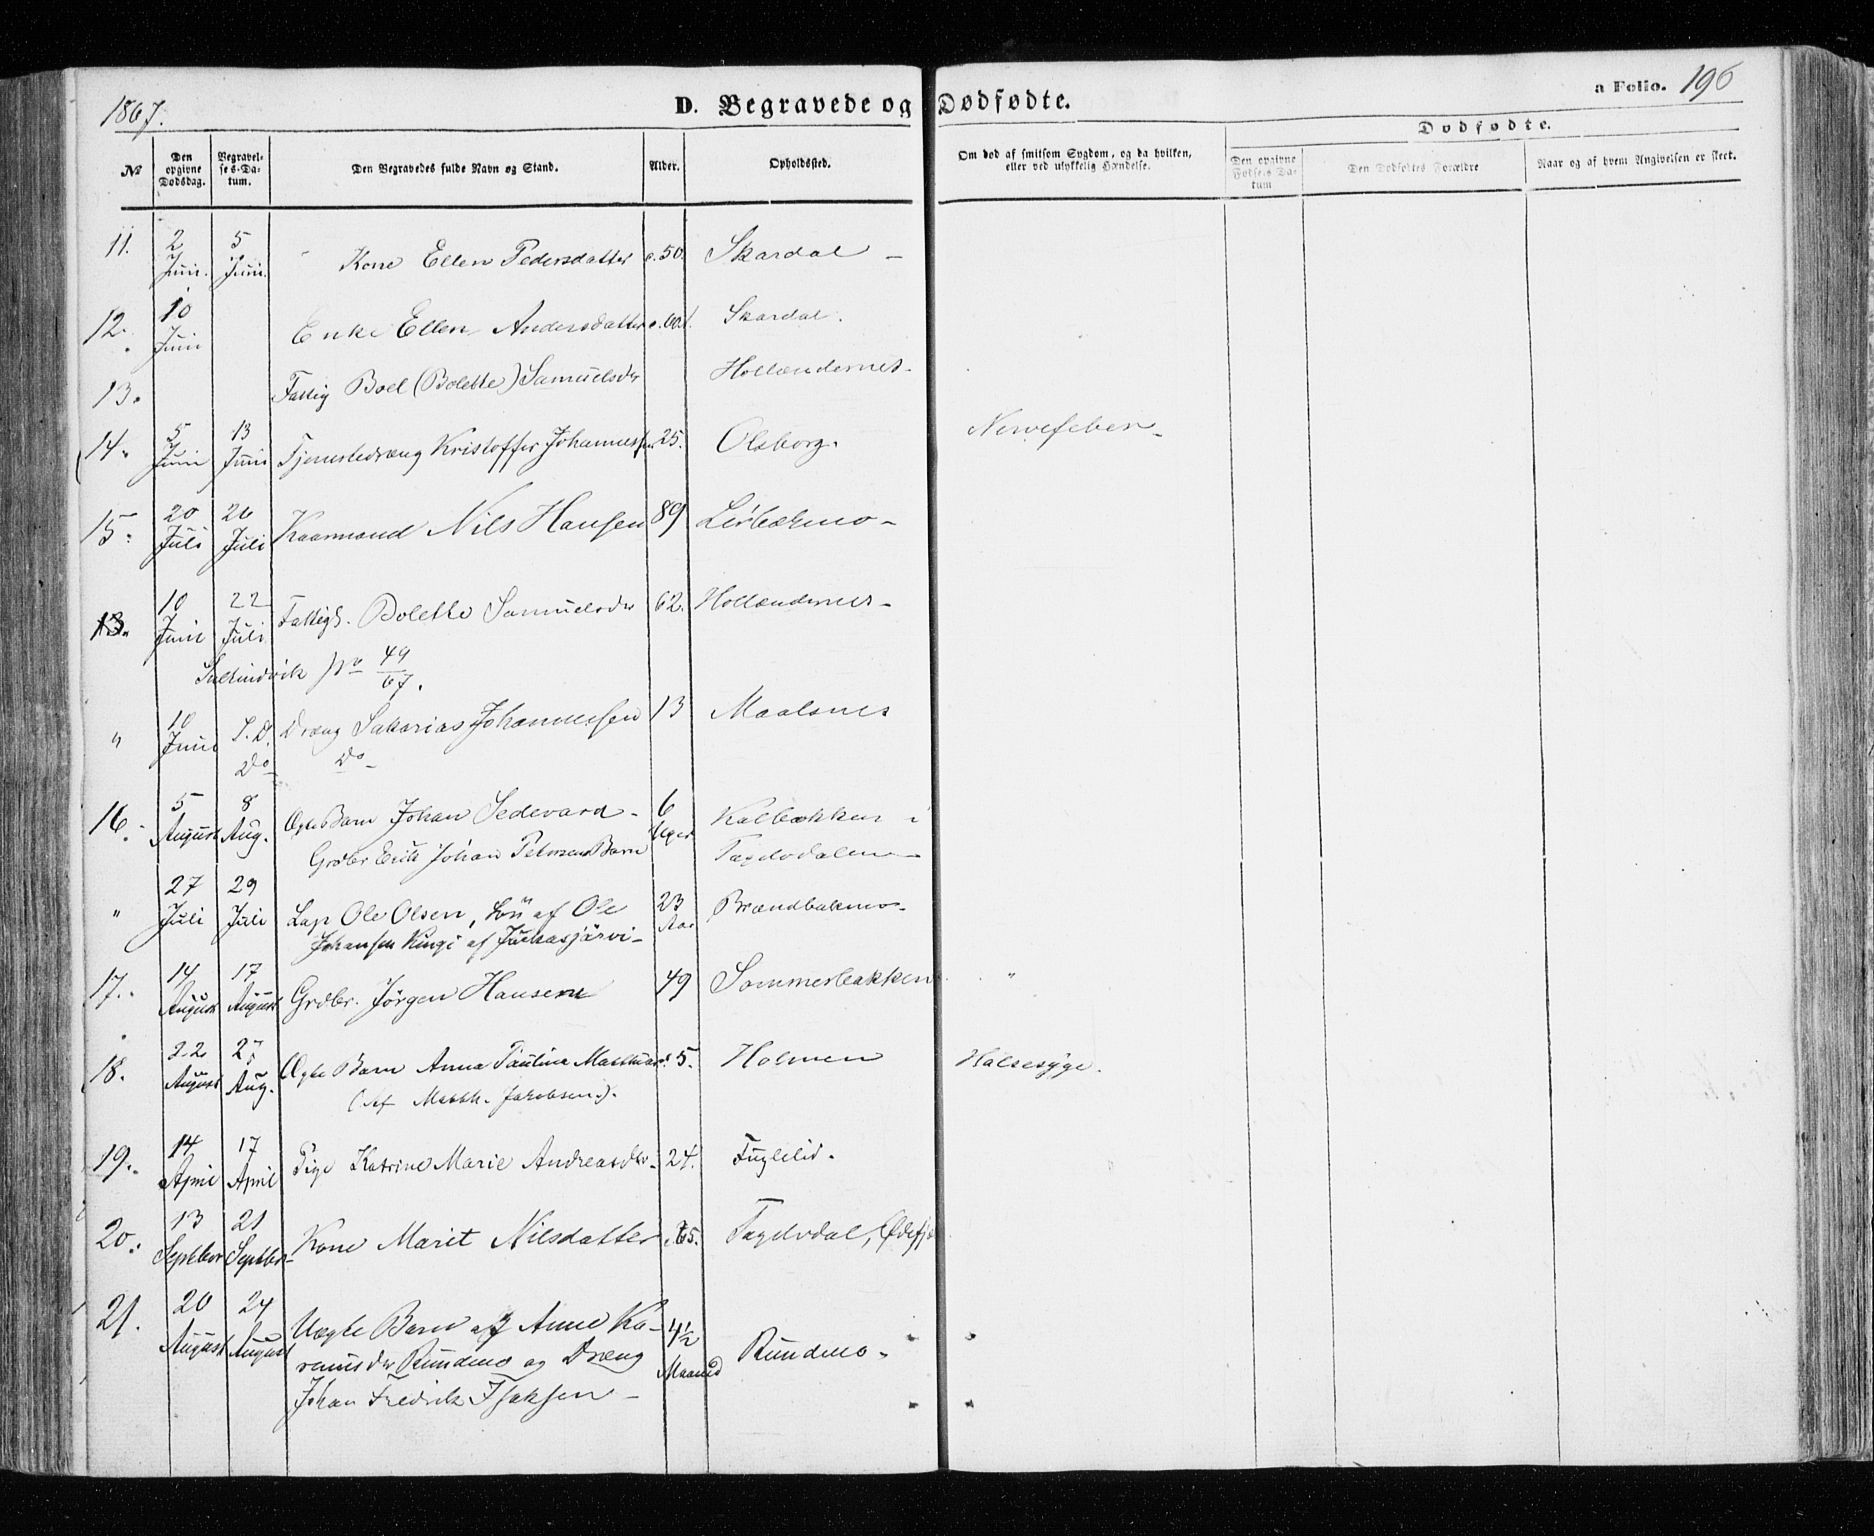 1867.
D. Begravede og Dødfødte.
a Folio. 196
No
Den opgivne Dødsdag.
Begravelses-Datum.
Den Begravedes fulde Navn og Stand.
Alder.
Opholdssted.
Om død af smitsom Sygdom, og da hvilken, eller ved ulykkelig Hændelse.
Dødfødte.
Den opgivne Fødsels Datum
Den Dødfødtes Forældre
Naar og af hvem Angivelsen er skeet.
11. 2 Juni. 5 Juni. Kone Ellen Pedersdatter c. 50. Skardal –
12. 10 Juni Enke Ellen Andersdatter c. 60. Skardal.
13. Fattig Boel (Bolette) Samuelsdr Hollændernes.
14. 5 Juni 13 Juni Tjenestedræng Kristoffer Johannessen 25. Olsborg. Nervefeber –
15. 20 Juli 26 Juli Kaarmand Nils Hansen 89 Leirbækmo –
13. 10 Juni 22 Juli Fattigl. Bolette Samuelsdr 62. Hollændernes –
No 49/67.
" 10 Juni S. D. Dræng Sakarias Johannessen 13 Maalsnes
Do Do
16. 5 August 8 Aug. Ægte Barn Johan Sedevard – 6 Uger Kalbakken i
Grdbr Erik Johan Petersens Barn Tagelvdalen –
" 27 Juli 29 Juli Lap Ole Olsen, Søn af Ole 23 Aar Brændbakmo –
Johansen Kingi af Juckasjärvi –
17. 14 August 17 August Grdbr. Jörgen Hansen 49 Sommerbakken "
18. 22 August 27 Aug. Ægte Barn Anna Paulina 5. Holmen Halsesyge.
(Af Matth. Jacobsen).
19. 14 April 17 April Pige Katrine Marie Andreasdr – 24. Fuglelid.
20. 13 Septbr 21 Septbr Kone Marit Nilsdatter 65. Tagelvdal,
21. 20 August 24 August Uægte Barn af Anne Ka- 4½ Maaned Rundmo.
Rundmo og Dræng
Johan Fredrik Isaksen –